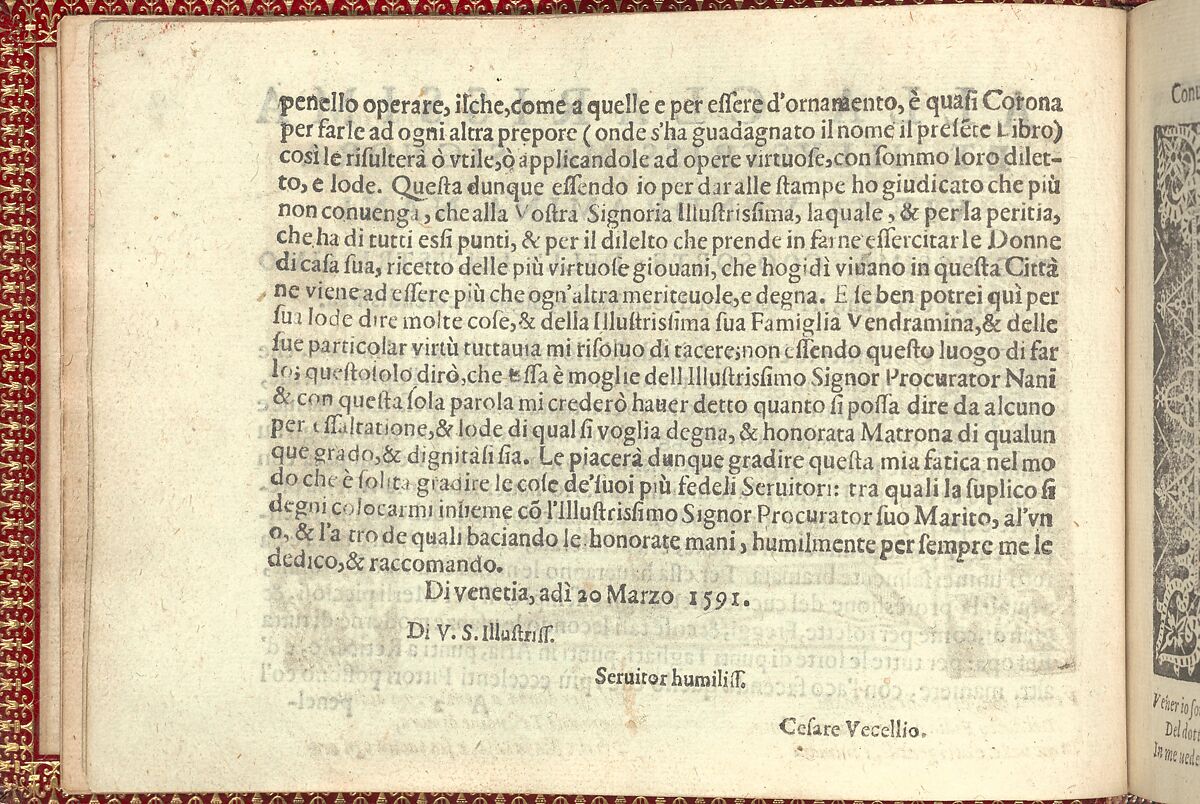 penello operare, ilche, come a quelle e per eſſere d'ornamento, è quaſi Corona
per farle ad ogni altra prepore ( onde s'ha guadagnato il nome il preſẽte Libro)
così le riſulterà ò vtile, ò applicandole ad opere virtuoſe, con ſommo loro dilet-
to, e lode. Queſta dunque eſſendo io per dar alle ſtampe ho giudicato che più
non conuenga, che alla Voſtra Signoria Illuſtriſsima, laquale, & per la peritia,
che ha di tutti eſsi punti, & per il dilelto che prende in farne eſſercitar le Donne
di caſa ſua, ricetto delle più virtuoſe giouani, che hogidì viuano in queſta Città
ne viene ad eſſere più che ogn'altra meriteuole, e degna. E ſe ben potrei quì per
ſua lode dire molte coſe, & della Illuſtriſsima ſua Famiglia Vendramina, & delle
ſue particolar virtù tuttauia mi riſoluo di tacere; non eſſendo queſto luogo di far
lo; queſto ſolo dirò, che eſſa è moglie dell Illuſtriſsimo Signor Procurator Nani
& con queſta ſola parola mi crederò hauer detto quanto ſi poſſa dire da alcuno
per eſſaltatione, & lode di qual ſi voglia degna, & honorata Matrona di qualun
que grado, & dignità ſi ſia. Le piacerà dunque gradire queſta mia fatica nel mo
do che è ſolita gradire le coſe de'ſuoi più fedeli Seruitori: tra quali la ſuplico ſi
degni colocarmi inſieme cõ l'Illuſtriſsimo Signor Procurator ſuo Marito, al'vn
o, & l'a tro de quali baciando le honorate mani, humilmente per ſempre me le
dedico, & raccomando.
Di venetia, adì 20 Marzo 1591.
Di V. S. Illuſtriſſ.
Seruitor humiliſſ.
Ceſare Vecellio.
Del dott
In me uede